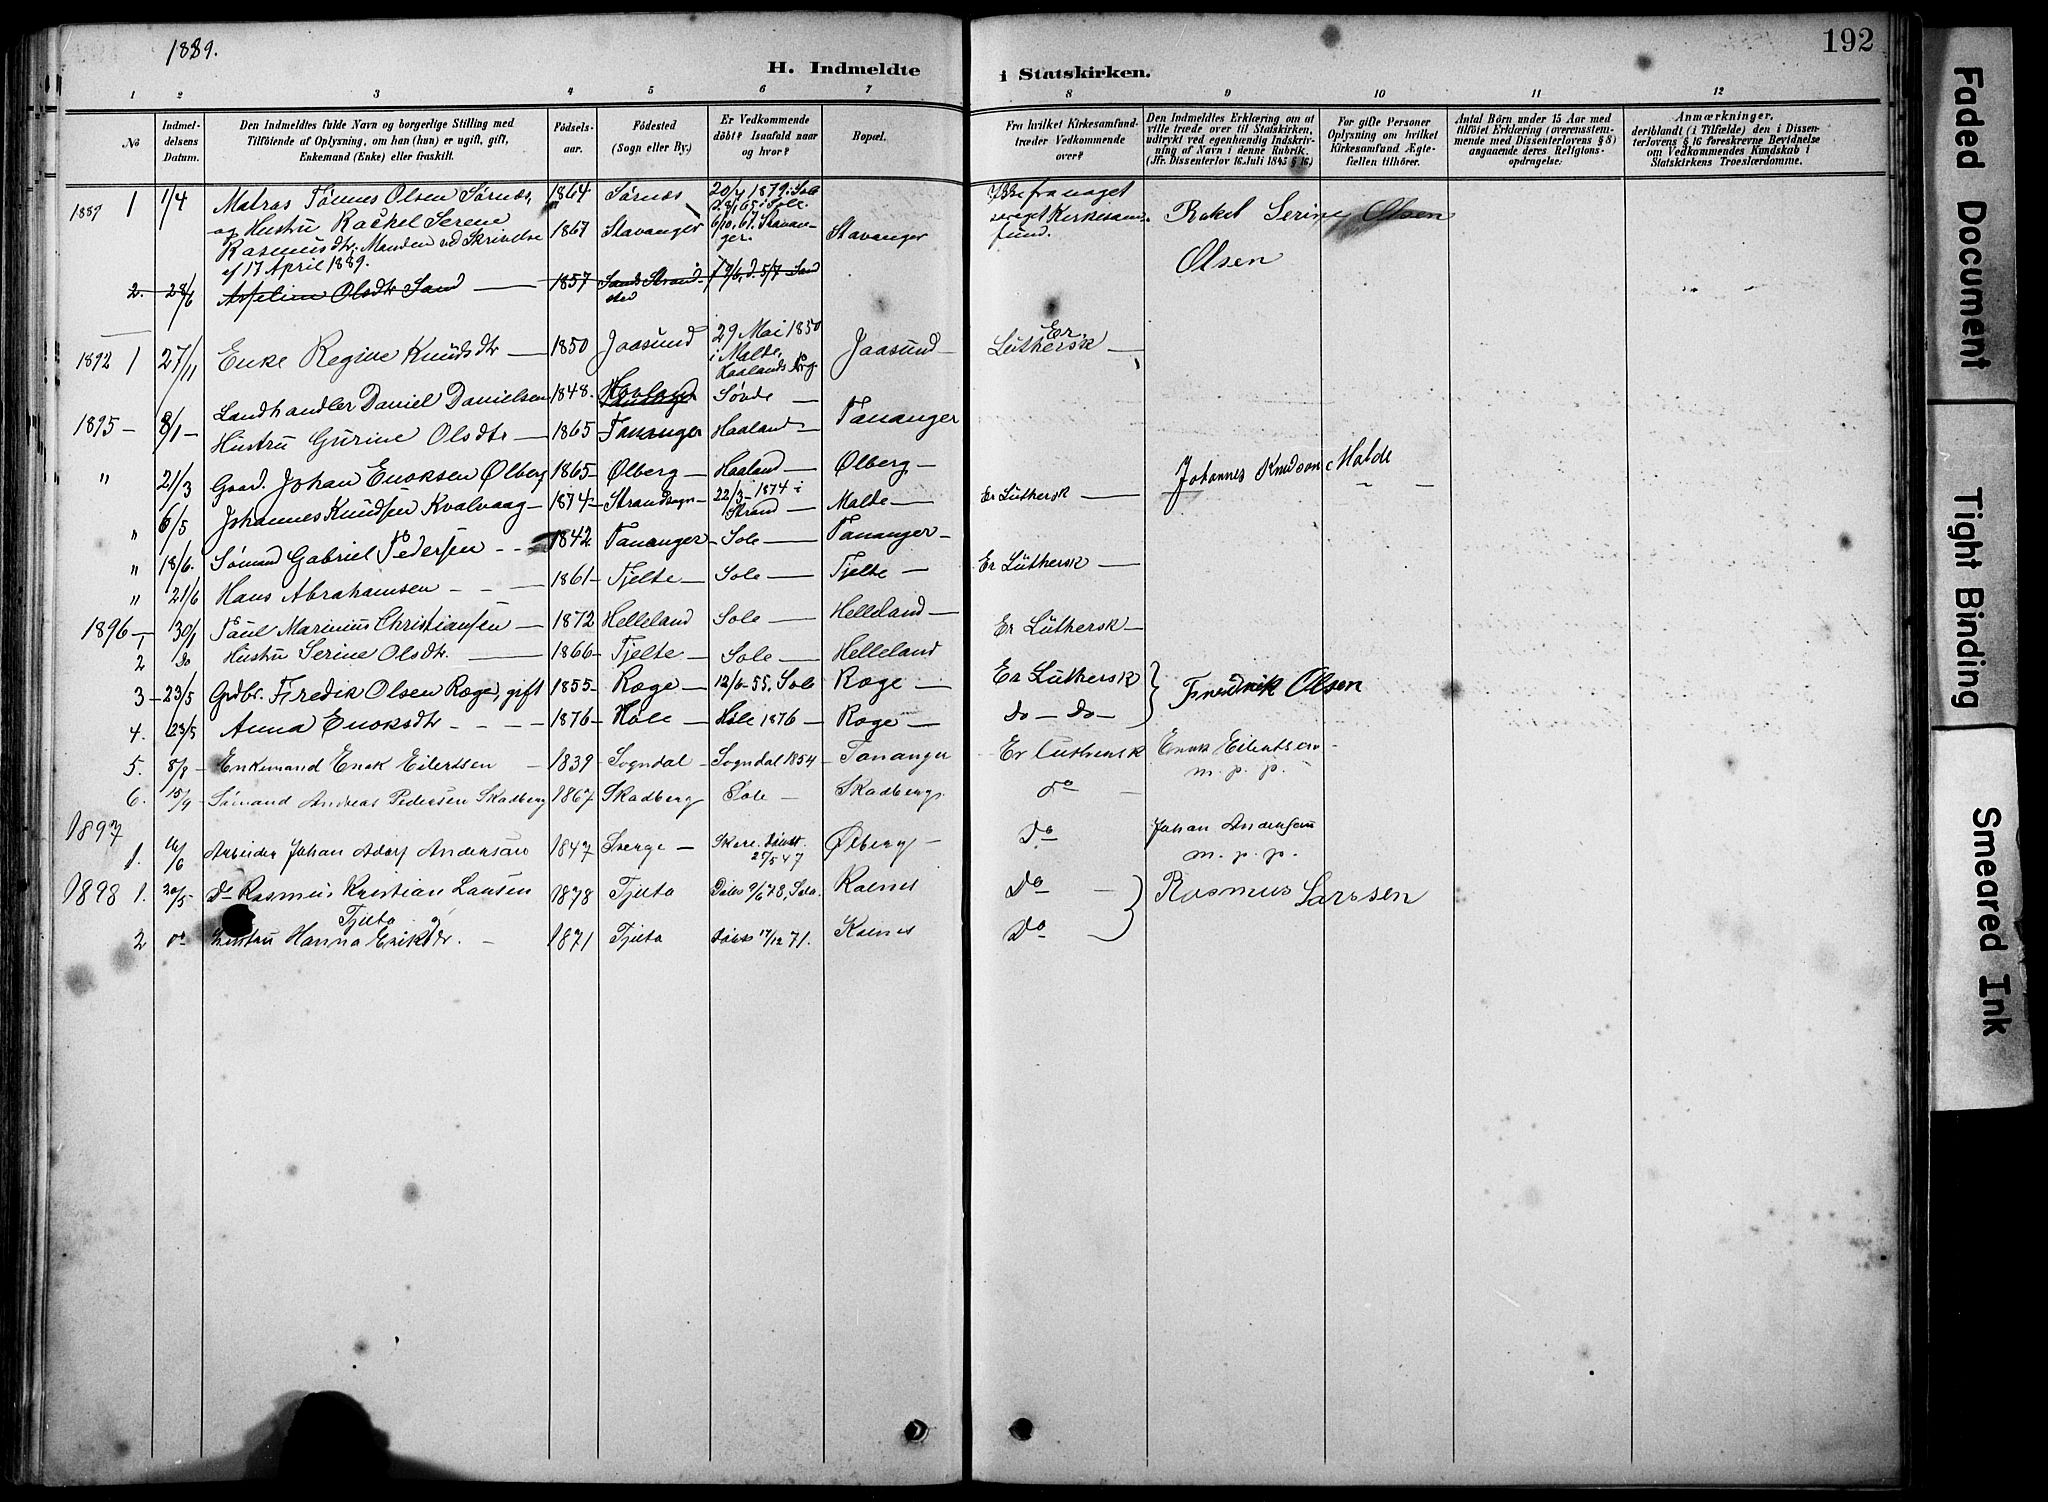 1889.
192
H. Indmeldte i Statskirken.
1 2 3 4 5 6 7 8 9 10 11 12
No
Indmel-
delsens
Datum.
Den Indmeldtes fulde Navn og borgerlige Stilling med
Tilföiende af Oplysning, om han (hun) er ugift, gift,
Enkemand (Enke) eller fraskilt.
Födsels-
aar.
Födested
(Sogn eller By.)
Er Vedkommende
döbt? Isaafald naar
og hvor?
Bopæl.
Fra hvilket Kirkesamfund
træder Vedkommende
over?
Den Indmeldtes Erklæring om at
ville træde over til Statskirken,
udtrykt ved egenhændig Indskriv-
ning af Navn i denne Rubrik.
(Jfr. Dissenterlov 16 Juli 1845 § 16)
For gifte Personer
Oplysning om hvilket
Kirkesamfund Ægte-
fællen tilhörer.
Antal Börn under 15 Aar med
tilföiet Erklæring (overensstem-
mende med Dissenterlovens § 8)
angaaende deres Religions-
opdragelse:
Anmærkninger,
deriblandt (i Tilfælde) den i Dissen-
terlovens § 16 foreskrevne Bevidnelse
om Vedkommendes Kundskab i
Statskirkens Troeslærdomme.
1889 1 1/4 Matras Tønnes Olsen Sørnæs, 1864 Sørnæs 20/4 1879 i Sole
og Hustru Rackel Serene 28/1 65 i Sole.
Rasmusdtr. Manden ved Skrivelse 1867 Stavanger 6/10, 67. Stavan-
ger. Stavanger
af 17 April 1889.
Ikke fra noget
Kirkesam-
fund.
Rakel Serine Olsen
Olsen
2. 28/6 Olsdtr Sand — 1857 Sand Strand 5/7 Sand
1892 1 27/11 Enke Regine Knudsdtr — 1850 Jaasund 29 Mai 1850
i Malde,
Haalands Prg. Jaasund — Er
Luthersk —
Landhandler Daniel Danielsen 1848. Søvde —
1895 — 8/1 — Hustru Gurine Olsdtr — 1865 Tananger Haaland — Tananger
" 21/3 Gaard. Johan Enoksen Ølberg 1865 — Ølberg — Haaland — Ølberg —
" 6/5 Johannes Knudsen Kvalvaag — 1874 — Strandsogn — 22/3 — 1874 i
Strand — Malde — Er Luthersk — Johannes Knudson Malde
" 18/6. Sømand Gabriel Pedersen - - 1842 Tananger — Sole — Tananger —
" 21/6 Hans Abrahamsen - - - 1861 — Tjelte — Sole — Tjelte — Er Luthersk —
1896 — 1 30/1 Paul Marinius Christiansen — 1872 Helleland Sole — Helleland — Er Luthersk —
2 do Hustru Serine Olsdtr. — 1866 — Tjelte — Sole — Helleland
3 — 23/5 Grdbr. Fredik Olsen Røge, gift 1855 — Røge — 12/6 — 55. Sole Røge — Er Luthersk Fredrik Olsen
4. 23/5 Anna Enoksdtr - - - 1876 — Høle — Høle 1876 — Røge — do — do —
5. 8/8 — Enkemand Enok Eilertsen — 1839 — Sogndal — Sogndal 1854 — Tananger Er luthersk Enok Eilertsen
m. p. p.
6. 15/9 Sømand Andreas Pedersen Skadberg 1867 Skadberg Sole — Skadberg. do —
1897
1. 16/6 Arbeider Johan Adorf Anderson 1847 Sverge — Skere. Døbt
27/5 47 Ølberg — Do Johan Anderson
m. p. p.
1898 1. 30/5 Do Rasmus Kristian Larsen 1878 Tjelta Døbt 9/6 78, Sola. Kolnes Do — Rasmus Larssen
Tjelta
2 do Hustru Hanna Eriksdr. — 1871 Tjelta Døbt 17/12 71. Kolnes Do —
Faded Document
Tight Binding
Smeared Ink